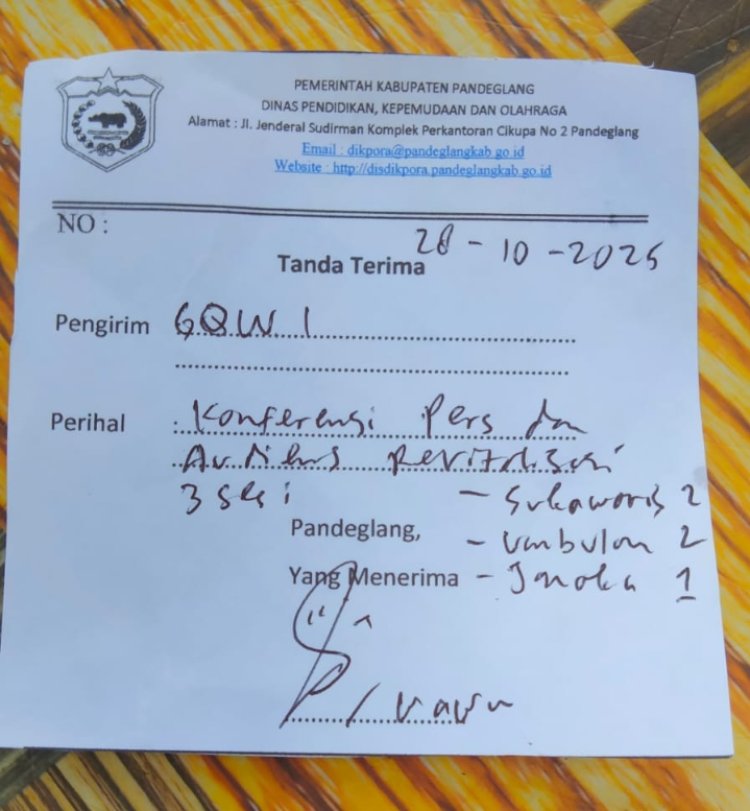 PEMERINTAH KABUPATEN PANDEGLANG
DINAS PENDIDIKAN, KEPEMUDAAN DAN OLAHRAGA
Alamat : Jl. Jenderal Sudirman Komplek Perkantoran Cikupa No 2 Pandeglang
Email : dikpora@pandeglangkab.go.id
Website : http://disdikpora.pandeglangkab.go.id
NO :
28-10-2025
Tanda Terima
Pengirim GQWI
Perihal : Konferensi Pers dan
3 - Sukawaris 2
Pandeglang, - Umbulan 2
Yang Menerima - 1